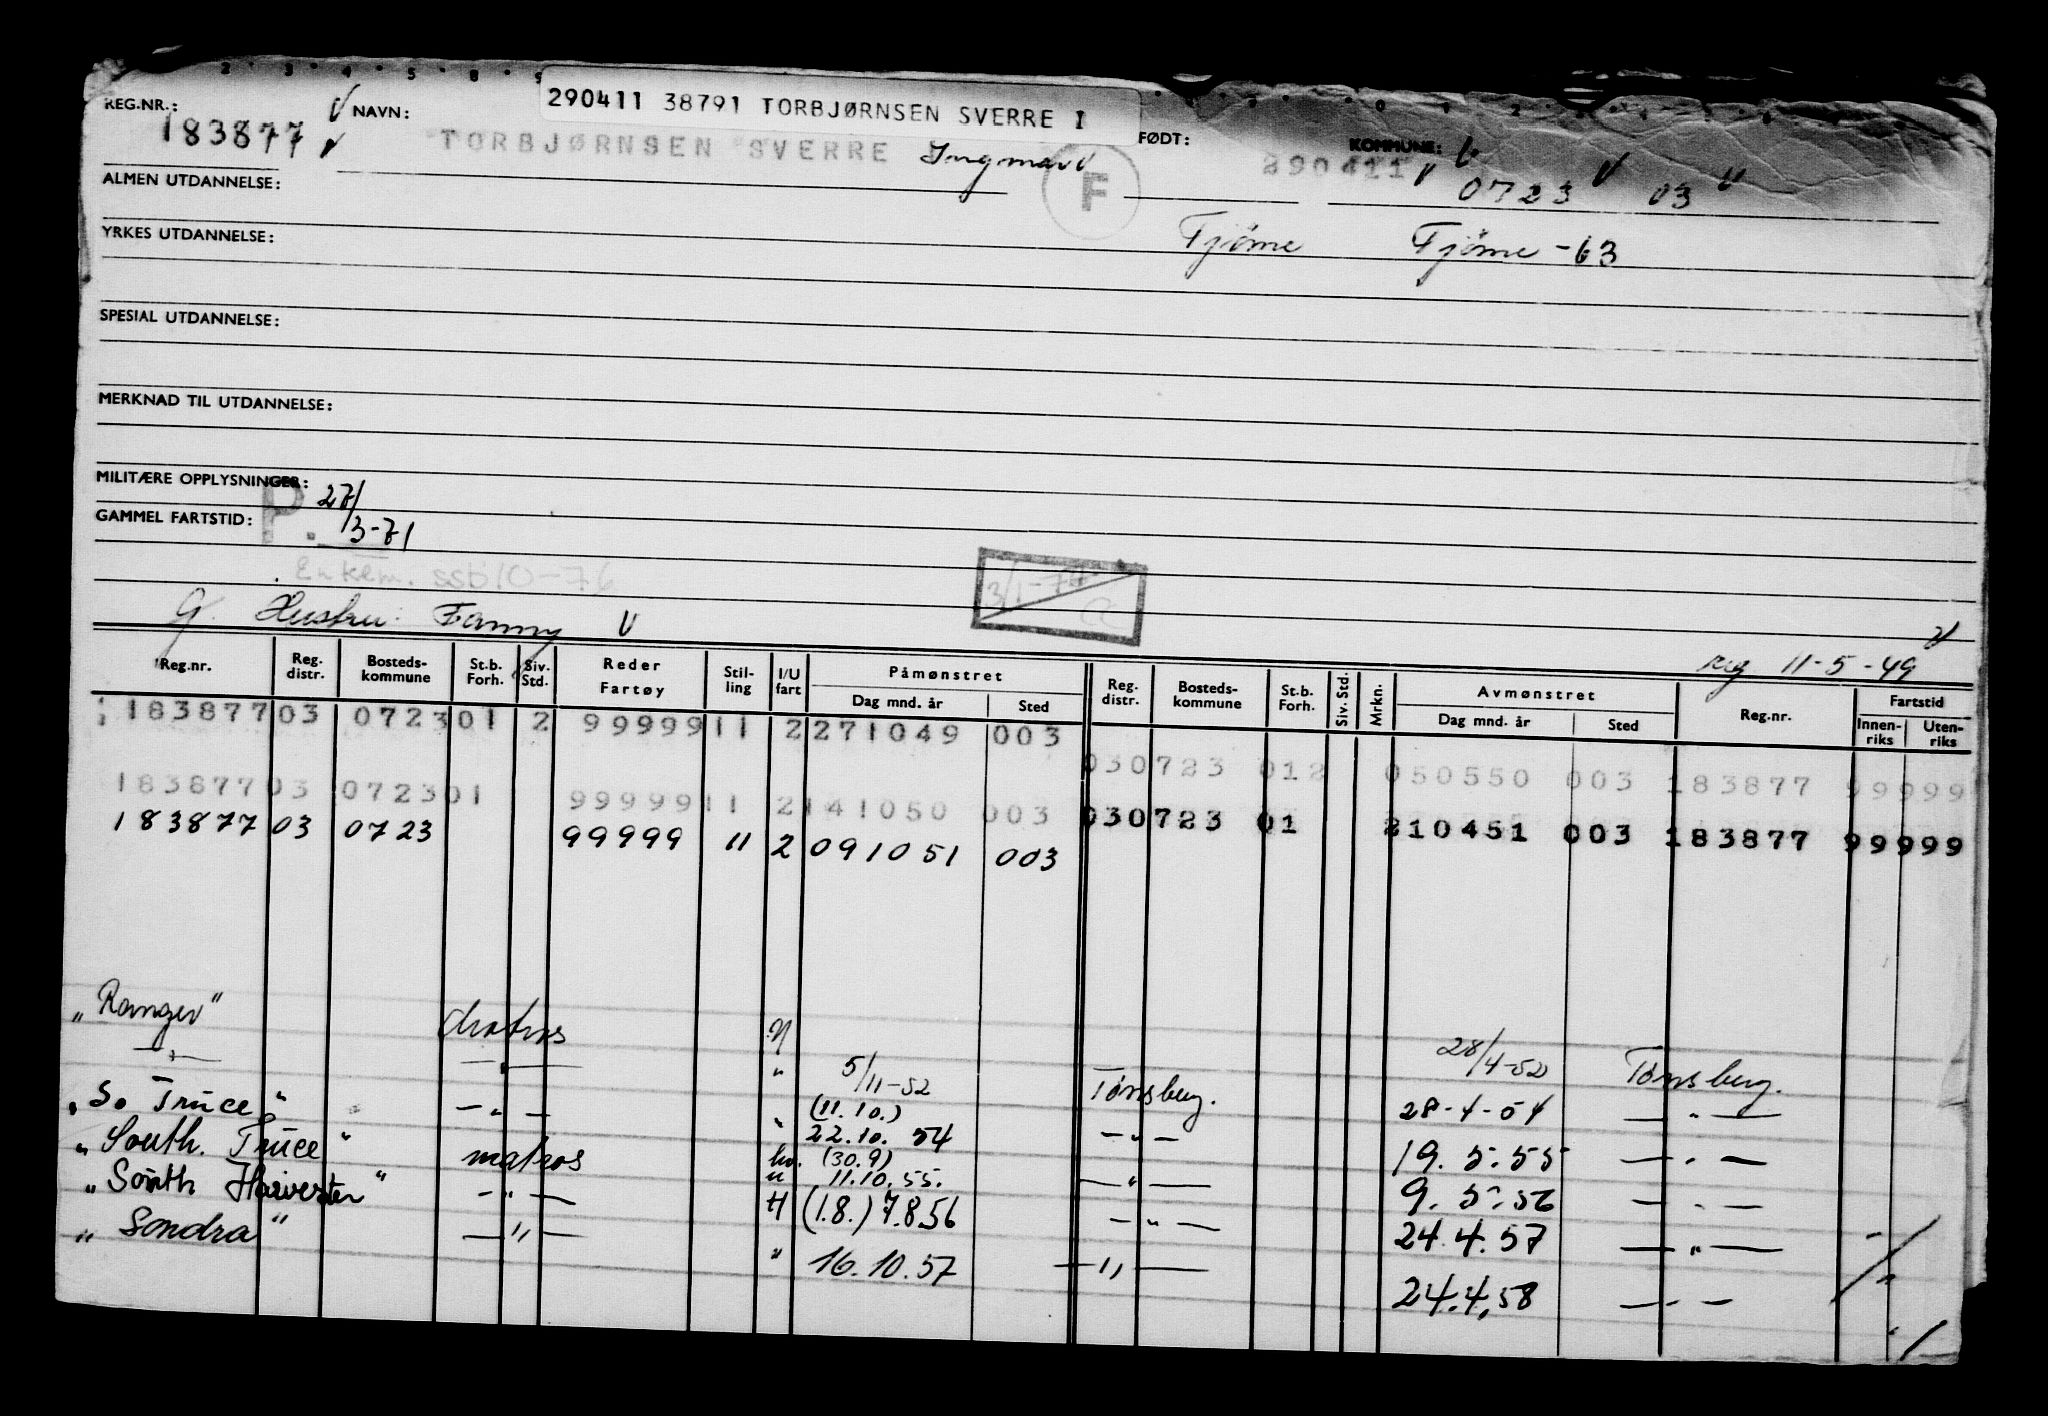 290411 38791 TORBJØRNSEN SVERRE I
REG.NR.: 183877 NAVN: TORBJØRNSEN SVERRE Ingmar F FØDT: 290411 KOMMUNE: 0723 03
ALMEN UTDANNELSE:
Tjöme Tjöme -63
YRKES UTDANNELSE:
SPESIAL UTDANNELSE:
MERKNAD TIL UTDANNELSE:
MILITÆRE OPPLYSNINGER:
P. 27/3-71
GAMMEL FARTSTID:
Enkem. ssb 10-76
G. Hustru: Fanny
reg 11-5-49
Reg.nr. Reg. distr. Bosteds-kommune St.b. Forh. Siv. Std. Reder Fartøy Stil-ling I/U fart Påmønstret Dag mnd. år Sted Reg. distr. Bosteds-kommune St.b. Forh. Siv. Std. Mrkn. Avmønstret Dag mnd. år Sted Reg.nr. Fartstid Innen-riks Uten-riks
183877 03 0723 01 2 99999 11 2 271049 003
03 0723 01 2 050550 003 183877 99999
183877 03 0723 01 99999 11 2 141050 003
03 0723 01 210451 003 183877 99999
183877 03 0723 99999 11 2 091051 003
"Ranger" matros 28/4-52 Tønsberg.
—"— —"— " 5/11-52 Tønsberg. 28-4-54 —"—
"So Truce" —"— " (11.10.) 22.10.54 —"— 19.5.55 —"—
"South. Truce" matros hv. (30.9) 11.10.55. —"— 9.5.56 —"—
"South Harvester" —"— H (1.8.) 7.8.56 —"— 24.4.57 —"—
"Sondra" —"— " 16.10.57 —"— 24.4.58 —"—